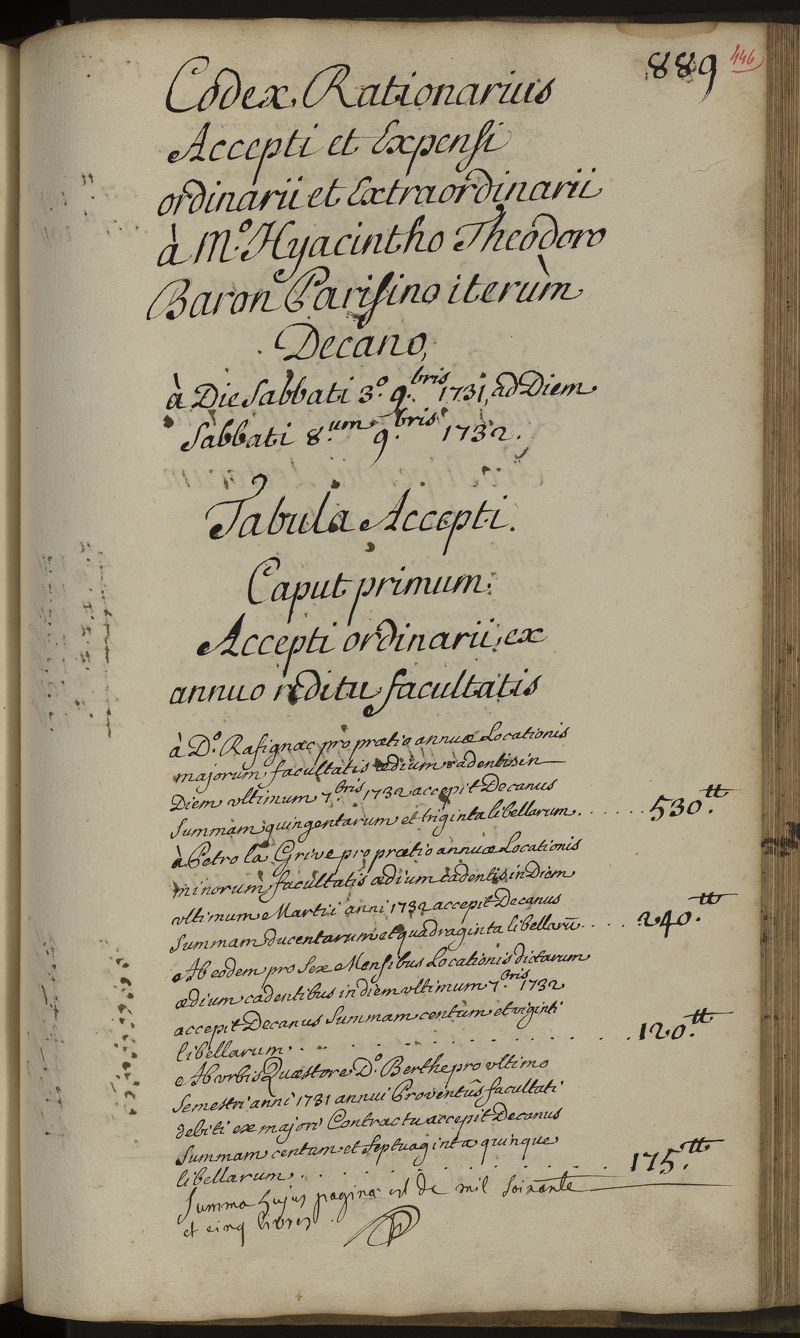 889 446
Codex Rationarius
Accepti et Expensi
ordinarii et Extraordinarii
à M.º Hyacintho Theodoro
Baron Parisino iterùm
Decano,
à Die Sabbati 3.º 9.bris 1731, ad Diem
Sabbati 8.um 9.bris 1732.
Tabula Accepti.
Caput primum.
Accepti ordinarii ex
annuo reditu facultatis
à D.º Rasignac pro pretio annuæ Locationis
majorum facultatis ædium cadentis in
Diem ultimum 7.bris 1732 accepit Decanus
Summam quingentarum et triginta libellarum. . . . . . 530.tt
à Petro la Grive pro pretio annuæ Locationis
minorum facultatis ædium cadentis in Diem
ultimum Martii anni 1732 accepit Decanus
Summam ducentarum et quadraginta libellarū. . . . . 240.tt
Ab eodem pro Sex Mensibus Locationis dictarum
ædium cadentibus in diem ultimum 7.bris 1732
accepit Decanus Summam centum et viginti
libellarum. . . . . . . . . . . . 120.tt
Ab urbis Quæstore D.º Berthe pro ultimo
Semestri anni 1731 annui Proventus facultati
debiti ex majori Contractu accepit Decanus
Summam centum et Septuaginta quinque
libellarum. . . . . . . . . . . . 175.tt
Summa hujus paginæ est de mil soixante
et cinq livres.